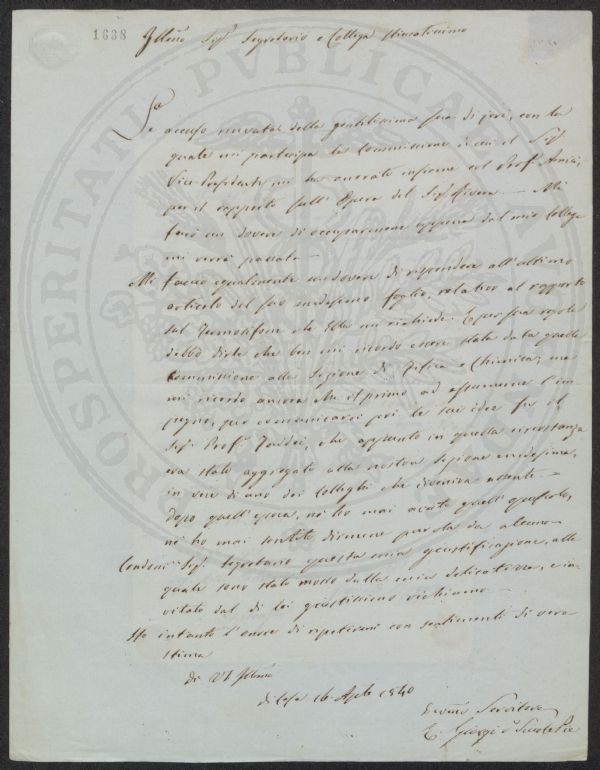 1638
Illmo Sigr Segretario e Collega Stimatissimo
Le accuso ricevuta della gentilissima sua di jeri, con la
quale mi partecipa la Commissione di cui il Sigr
Vice-Presidente mi ha onorato insieme col Profr Amici,
per il rapporto sull' Opera del Sigr — Mi
farò un dovere di occuparmene appena dal mio Collega
mi verrà passata —
Mi faccio egualmente un dovere di rispondere all' ultimo
articolo del suo medesimo foglio, relativo al rapporto
sul che Ella mi richiede. E per sua regola
debbo dirle che ben mi ricordo essere stata data quella
Commissione alla Sezione di Fisica e Chimica; ma
mi ricordo ancora che il primo ad assumerne l' im
pegno, per comunicarci poi le sue idee fu il
Sigr Profr Taddei, che appunto in quella circostanza
era stato aggregato alla nostra Sezione medesima,
in vece di uno dei Colleghi che diveniva assente —
dopo quell' epoca, nè ho mai avuto quell'
nè ho mai sentito dirmene parola da alcuno —
Condoni Sigr Segretario questa mia giustificazione, alla
quale sono stato mosso dalla mia delicatezza, e in
vitato dal di lei giustissimo richiamo —
Ho intanto l' onore di ripetermi con sentimenti di vera
stima
di VS Illma
di Casa 16 Aple 1840
Devmo Servitore
G. Giorgi d Scuole Pie
PROSPERITATI PVBLICAE AVGENDAE